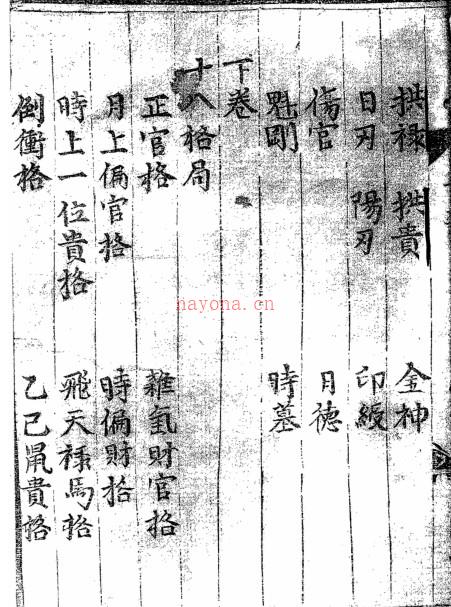 拱祿 拱貴 金神
日刃 陽刃 印綬
傷官 日德
魁罡 時墓
下卷
十八格局
正官格 雜氣財官格
月上偏官格 時偏財格
時上一位貴格 飛天祿馬格
倒衝格 乙己鼠貴格
nayona.cn